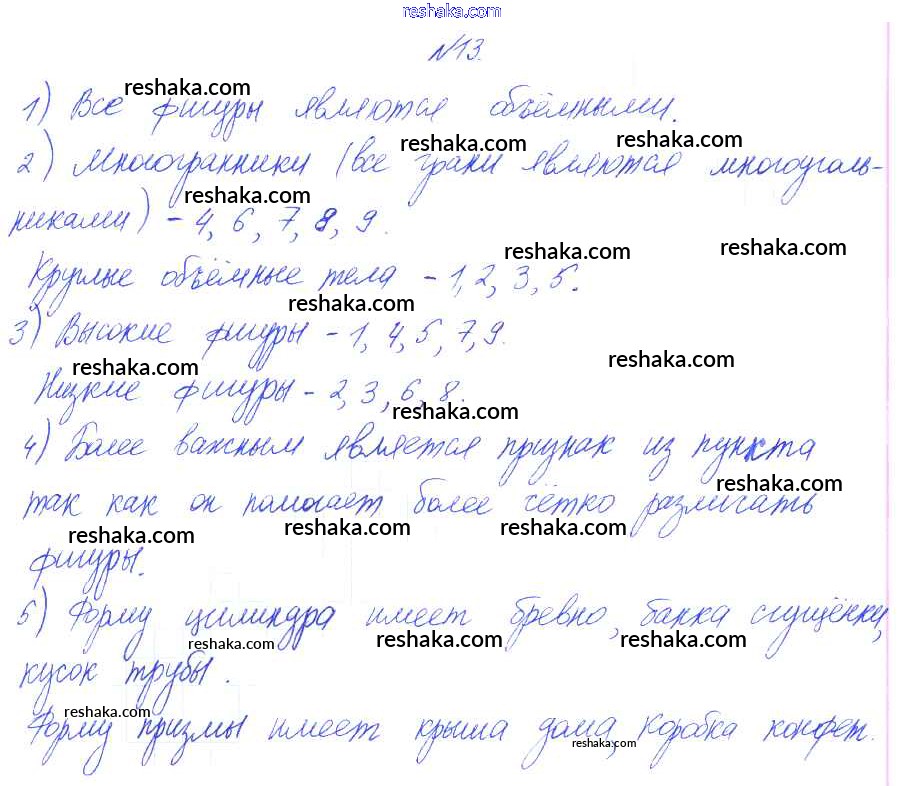 reshaka.com
№13.
reshaka.com
1) Все фигуры являются объёмными.
reshaka.com reshaka.com
2) Многогранники (все грани являются многоуголь-
reshaka.com
никами) - 4, 6, 7, 8, 9.
reshaka.com reshaka.com
Круглые объёмные тела - 1, 2, 3, 5.
reshaka.com
3) Высокие фигуры - 1, 4, 5, 7, 9.
reshaka.com reshaka.com
Низкие фигуры - 2, 3, 6, 8.
reshaka.com
4) Более важным является признак из пункта
reshaka.com
так как он помогает более чётко различать
reshaka.com reshaka.com reshaka.com
фигуры.
5) Форму цилиндра имеет бревно, банка сгущёнки,
reshaka.com reshaka.com reshaka.com
кусок трубы.
reshaka.com
Форму призмы имеет крыша дома, коробка конфет.
reshaka.com